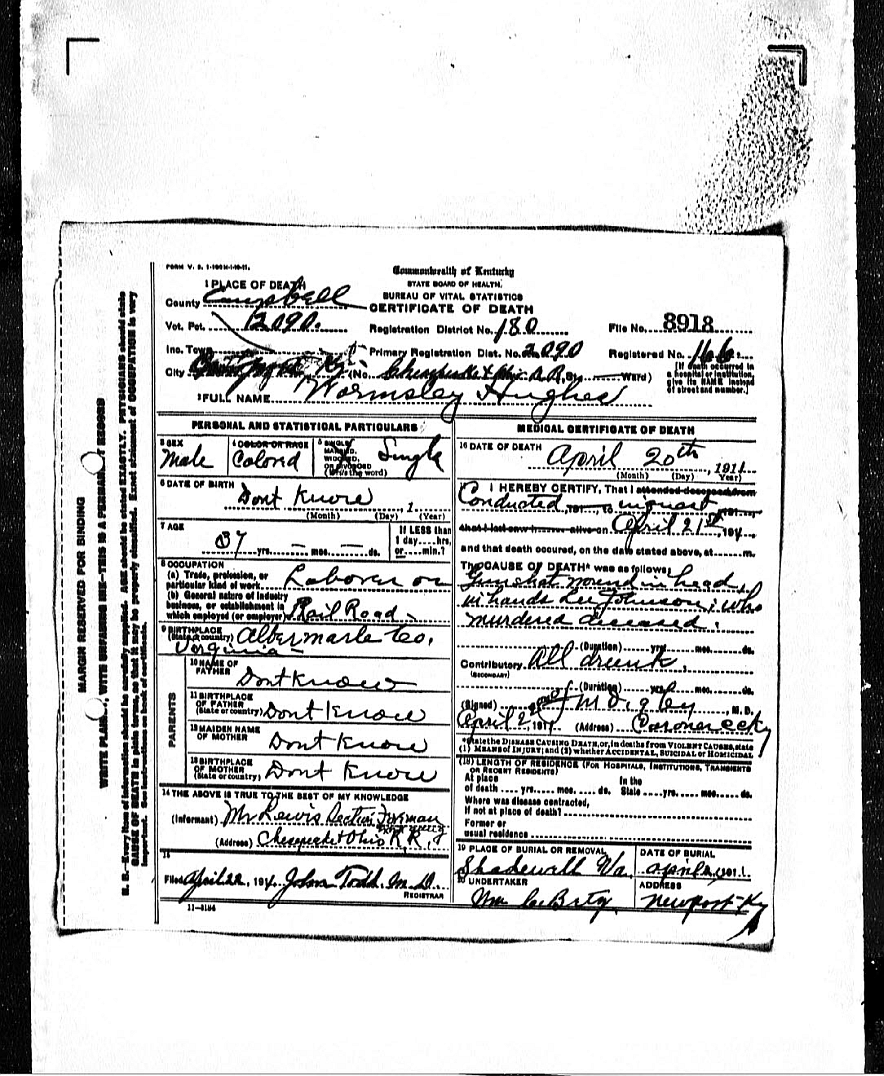 FORM V. S. 1-
Commonwealth of Kentucky
STATE BOARD OF HEALTH.
BUREAU OF VITAL STATISTICS
CERTIFICATE OF DEATH
1 PLACE OF DEATH
County Campbell
Vot. Pct. 12090.
Registration District No. 180
File No. 8918
Inc. Town
Primary Registration Dist. No. 2090
Registered No. 166
City Ky. (No. Chesapeake & Ohio R.R. Ward)
[If death occurred in a hospital or institution, give its NAME instead of street and number.]
2 FULL NAME Wormsley Hughes
PERSONAL AND STATISTICAL PARTICULARS
3 SEX Male
4 COLOR OR RACE Colored
5 SINGLE, MARRIED, WIDOWED, OR DIVORCED (Write the word) Single
6 DATE OF BIRTH Dont Know , 1
(Month) (Day) (Year)
7 AGE 37 yrs. — mos. — ds.
If LESS than 1 day....hrs. or....min.?
8 OCCUPATION
(a) Trade, profession, or particular kind of work. Laborer on
(b) General nature of industry business, or establishment in which employed (or employer) Rail Road
9 BIRTHPLACE (State or country) Albermarle Co. Virginia
PARENTS
10 NAME OF FATHER Dont Know
11 BIRTHPLACE OF FATHER (State or country) Dont Know
12 MAIDEN NAME OF MOTHER Dont Know
13 BIRTHPLACE OF MOTHER (State or country) Dont Know
14 THE ABOVE IS TRUE TO THE BEST OF MY KNOWLEDGE
(Informant) Mr Lewis Section Forman
(Address) Chesapeeke & Ohio R R
15
Filed April 22, 191 John Todd. M.D.
REGISTRAR
11-3184
MEDICAL CERTIFICATE OF DEATH
16 DATE OF DEATH April 20th , 1911
(Month) (Day) (Year)
17 I HEREBY CERTIFY, That I attended deceased from
Conducted 191 to inquest 191
that I last saw h alive on April 21st, 191
and that death occured, on the date stated above, at m.
The CAUSE OF DEATH* was as follows:
Gunshot wound in head,
in hands Lee Johnson; who
murdered deceased.
(Duration) yrs. mos. ds.
Contributory All drunk.
(SECONDARY)
(Duration) yrs. mos. ds.
(Signed) M. D.
April 2 , 191 (Address) Coroner
*State the DISEASE CAUSING DEATH, or, in deaths from VIOLENT CAUSES, state
(1) MEANS OF INJURY; and (2) whether ACCIDENTAL, SUICIDAL or HOMICIDAL
(18) LENGTH OF RESIDENCE (FOR HOSPITALS, INSTITUTIONS, TRANSIENTS OR RECENT RESIDENTS)
At place of death .... yrs. .... mos. .... ds. In the State .... yrs. .... mos. .... ds.
Where was disease contracted,
If not at place of death?
Former or
usual residence
19 PLACE OF BURIAL OR REMOVAL Shadewell Va.
DATE OF BURIAL April , 1911.
20 UNDERTAKER Wm
ADDRESS Newport Ky
MARGIN RESERVED FOR BINDING
WRITE PLAINLY, WITH UNFADING INK—THIS IS A PERMANENT RECORD
N. B.—Every item of information should be carefully supplied. AGE should be stated EXACTLY. PHYSICIANS should state
CAUSE OF DEATH in plain terms, so that it may be properly classified. Exact statement of OCCUPATION is very
important. See instructions on back of certificate.